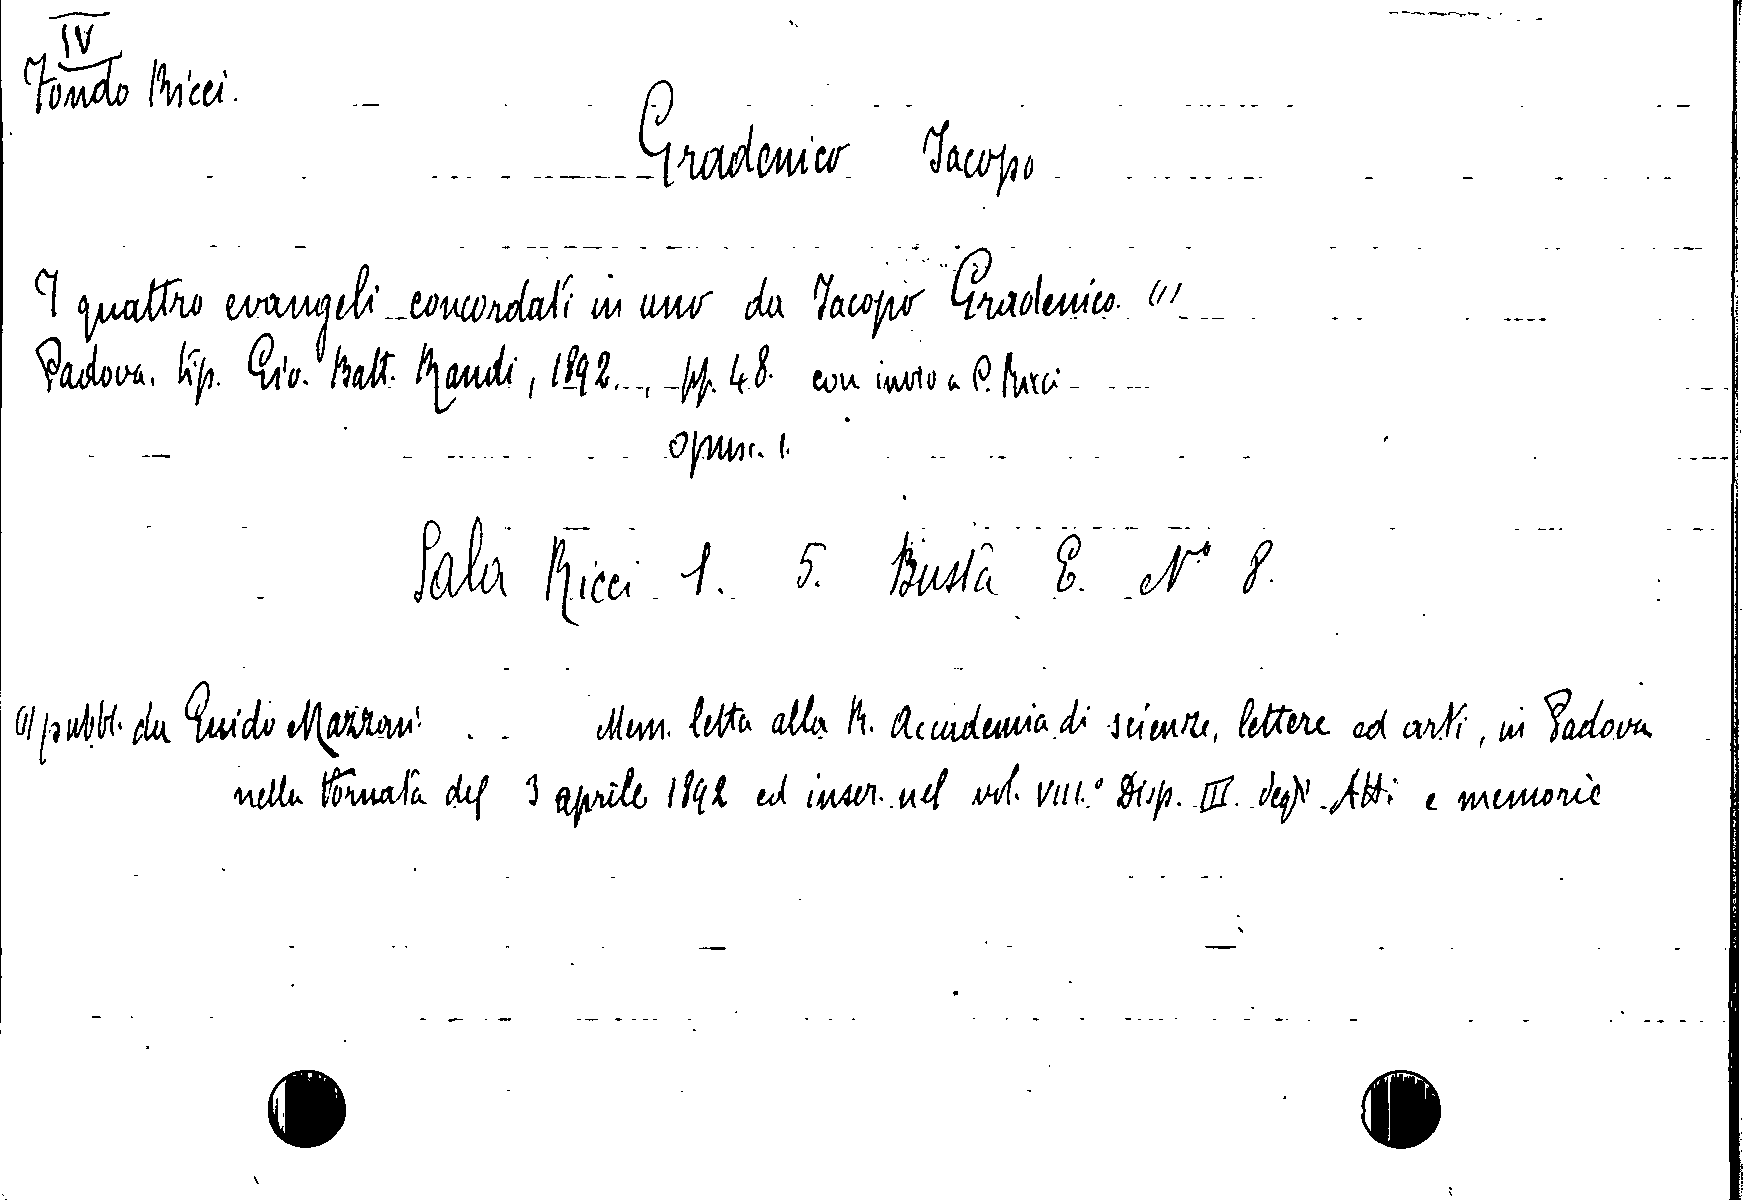 IV
Fondo Ricci.
Gradenico Jacopo
I quattro evangeli concordati in uno da Jacopo Gradenico. (1)
Padova. tip. Gio. Batt. Randi, 1892., pp. 48. con invio a C. Ricci
opusc. 1.
Sala Ricci 1. 5. Busta E. N° 8.
(1) pubbl. da Guido Mazzoni .. Mem. letta alla R. Accademia di scienze, lettere ed arti, in Padova
nella tornata del 3 aprile 1892 ed inser. nel vol. VIII.° Disp. III. degli Atti e memorie